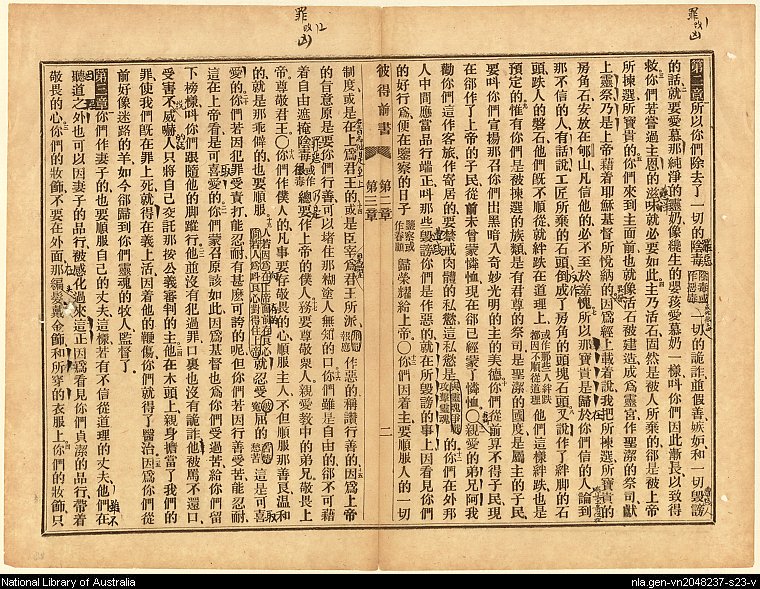 第二章所以你們除去了一切的陰毒陰毒或作惡毒一切的詭詐並假善嫉妒和一切毀謗
的話就要愛慕那純淨的靈奶像纔生的嬰孩愛慕奶一樣叫你們因此漸長以致得
救你們若嘗過主恩的滋味就必要如此主乃活石固然是被人所棄的卻是被上帝
所揀選所寶貴的你們來到主面前也就像活石被建造成爲靈宮作聖潔的祭司獻
上靈祭乃是上帝藉着耶穌基督所悅納的因爲經上載着說我把所揀選所寶貴的
房角石安放在郇山凡信他的必不至於羞愧所以那寶貴是歸於你們信的人論到
那不信的人有話說工匠所棄的石頭倒成了房角的頭塊石頭又說作了絆脚的石
頭跌人的磐石他們旣不順從就絆跌在道理上或作那些人絆跌都因不順從道理他們這樣絆跌也是
預定的惟有你們是被揀選的族類是有君尊的祭司是聖潔的國度是屬主的子民
要叫你們宣揚那召你們出黑暗入奇妙光明的主的美德你們從前算不得子民現
在卻作了上帝的子民從前未曾蒙憐恤現在卻已經蒙了憐恤〇親愛的弟兄阿我
勸你們這作客旅作寄居的要禁戒肉體的私慾這私慾是攻擊靈魂的你們在外邦
人中間應當品行端正叫那些毀謗你們是作惡的就在所毀謗的事上因看見你們
的好行爲便在鑒察的日子鑒察或作眷顧歸榮耀給上帝〇你們因着主要順服人的一切
彼得前書 第二章 第三章 二
制度或是在上爲君王的或是臣宰爲君王所派報應作惡的稱讚行善的因爲上帝
的旨意原是要你們行善可以堵住那糊塗人無知的口你們雖是自由的卻不可藉
着自由遮掩陰毒或作惡毒總要作上帝的僕人務要尊敬衆人親愛教中的弟兄敬畏上
帝尊敬君王〇你們作僕人的凡事要存敬畏的心順服主人不但順服那善良溫和
的就是那乖僻的也要順服就忍受這是可喜
愛的你們若因犯罪受責打能忍耐有甚麽可誇的呢但你們若因行善受苦能忍耐
這在上帝看是可喜愛的你們蒙召原該如此因爲基督也爲你們受過苦給你們留
下榜樣叫你們跟隨他的脚蹤行他並沒有犯過罪口裏也沒有詭詐他被罵不還口
受害不威嚇人只將自己交託那按公義審判的主他在木頭上親身擔當了我們的
罪使我們旣在罪上死就得在義上活因着他的鞭傷你們就得了醫治因爲你們從
前好像迷路的羊如今卻歸到你們靈魂的牧人監督了
第三章你們作妻子的也要順服自己的丈夫這樣若有不信從道理的丈夫他們在
聽道之外也可以因妻子的品行被感化過來這正因爲看見你們貞潔的品行帶着
敬畏的心你們的妝飾不要在外面那編髮戴金飾和所穿的衣服上你們的妝飾只
罪改凶
12
罪改凶
National Library of Australia
nla.gen-vn2048237-s23-v